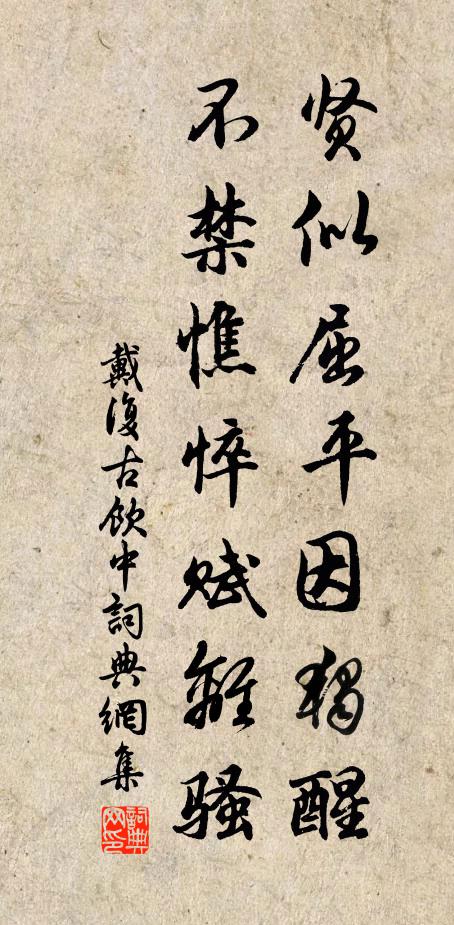 贤似屈平因独醒
不禁憔悴赋离骚
戴復古飲中詞典網集
詞典网印